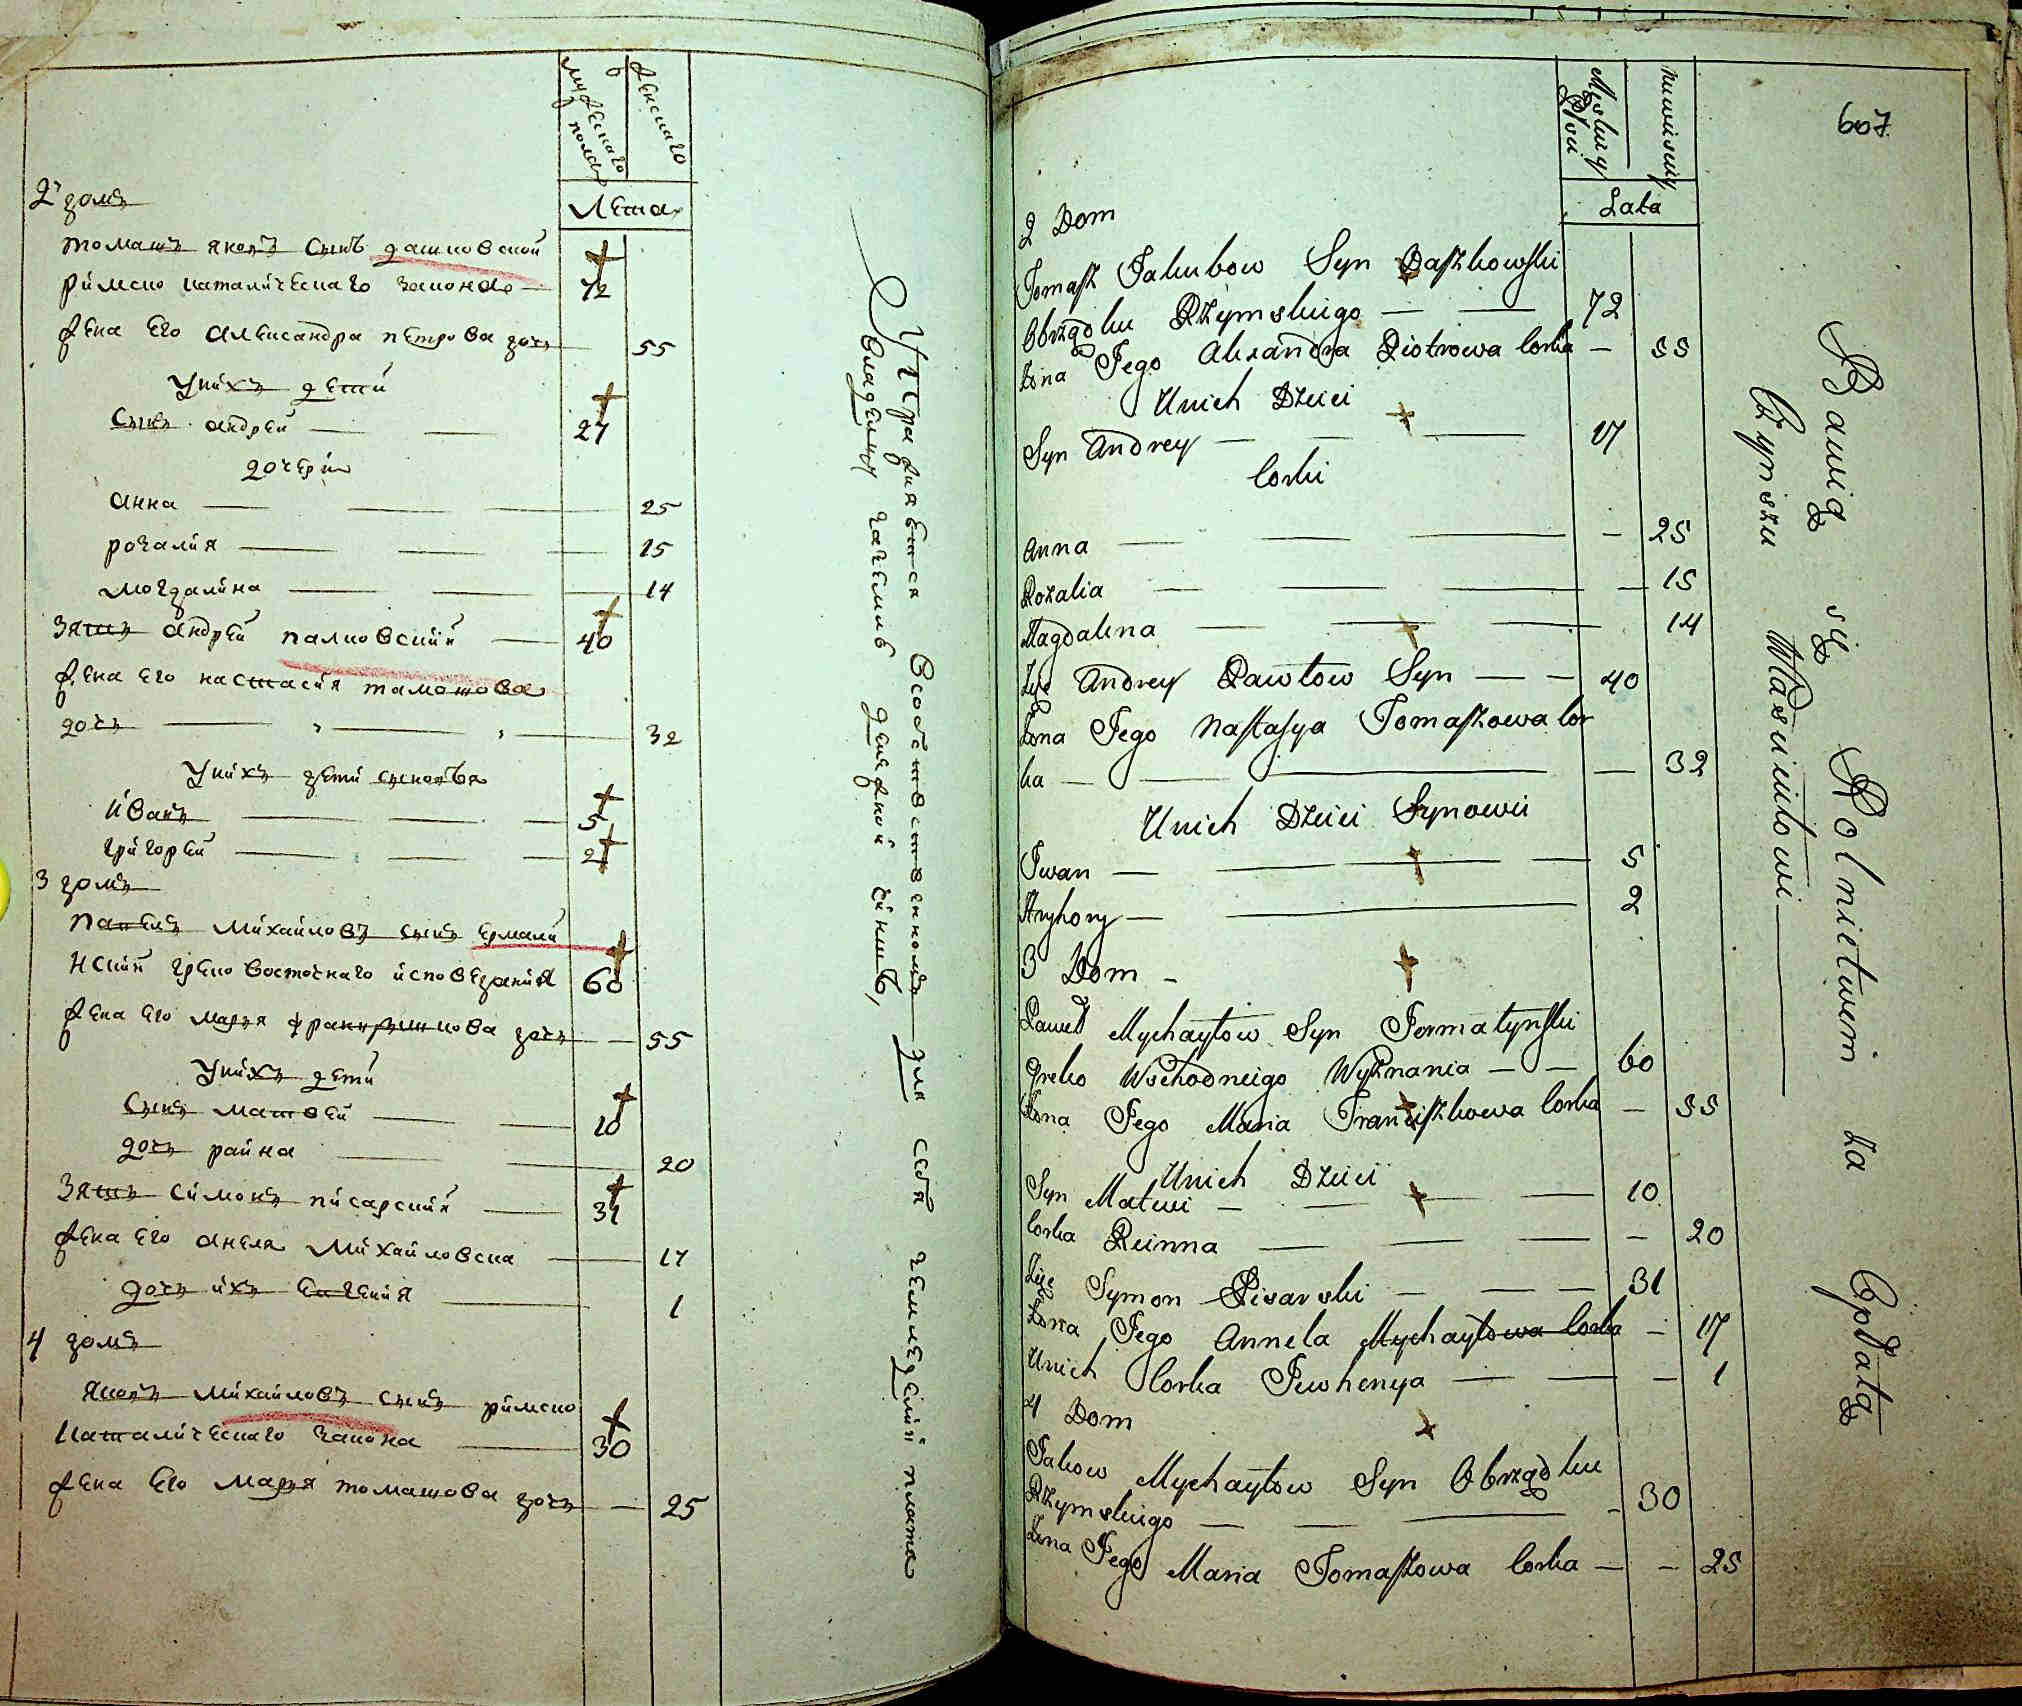 мужескаго пола
женскаго
Лета
2й домъ
томашъ якобъ сынъ дашковской
римско католическаго закона — 72
жена Его александра петрова дочь — 55
Уних дети
Сынъ андрей — 27
дочери
анна — 25
розалия — 15
могдалина — 14
Зять андрей палковский — 40
жена Его настасия томашова
дочь — 32
Унихъ дети сыновья
иванъ — 5
григорей — 2
3 домъ
павелъ михайловъ сынъ ермали
нский греко восточнаго исповедания 60
жена Его марья францишкова дочь — 55
Унихъ дети
Сынъ матвей — 10
дочь райна — 20
Зять симонъ писарский — 31
жена Его анеля михайловска — 17
дочь ихъ Евгения — 1
4 домъ
Яковъ михайловъ сынъ римско
католическаго закона — 30
жена Его марья томашова дочь — 25
Упражняется Всобственномъ для себя земледелии плата
владелцу
607
Męskiey Płci
niewieskiey
Lata
2 Dom
Tomasz Jakubow Syn Daszkowski
Obrządku Rzymskiego — 72
Żona Jego Alexandra Piotrowa Corka — 55
Unich Dzieci
Syn Andrey — 17
Corki
Anna — 25
Rozalia — 15
Magdalena — 14
Zięć Andrey Pawłow Syn — 40
Żona Jego Nastasya Tomaszowa Cor
ka — 32
Unich Dzieci Synowie
Iwan — 5
Hryhory — 2
3 Dom —
Paweł Mychayłow Syn Jermatynski
Greko Wschodniego Wyznania — 60
Żona Jego Maria Franciszkowa Corka — 55
Unich Dzieci
Syn Matwi — 10
Corka Reinna — 20
Zięć Symon Pisarski — 31
Żona Jego Annela Mychayłowa Corka — 17
Unich Corka Jewhenya — 1
4 Dom
Jakow Mychayłow Syn Obrządku
Rzymskiego — 30
Żona Jego Maria Tomaszowa Corka — 25
Bawią się Rolnictwem za Opłatą
Czynszu Włascicielowi